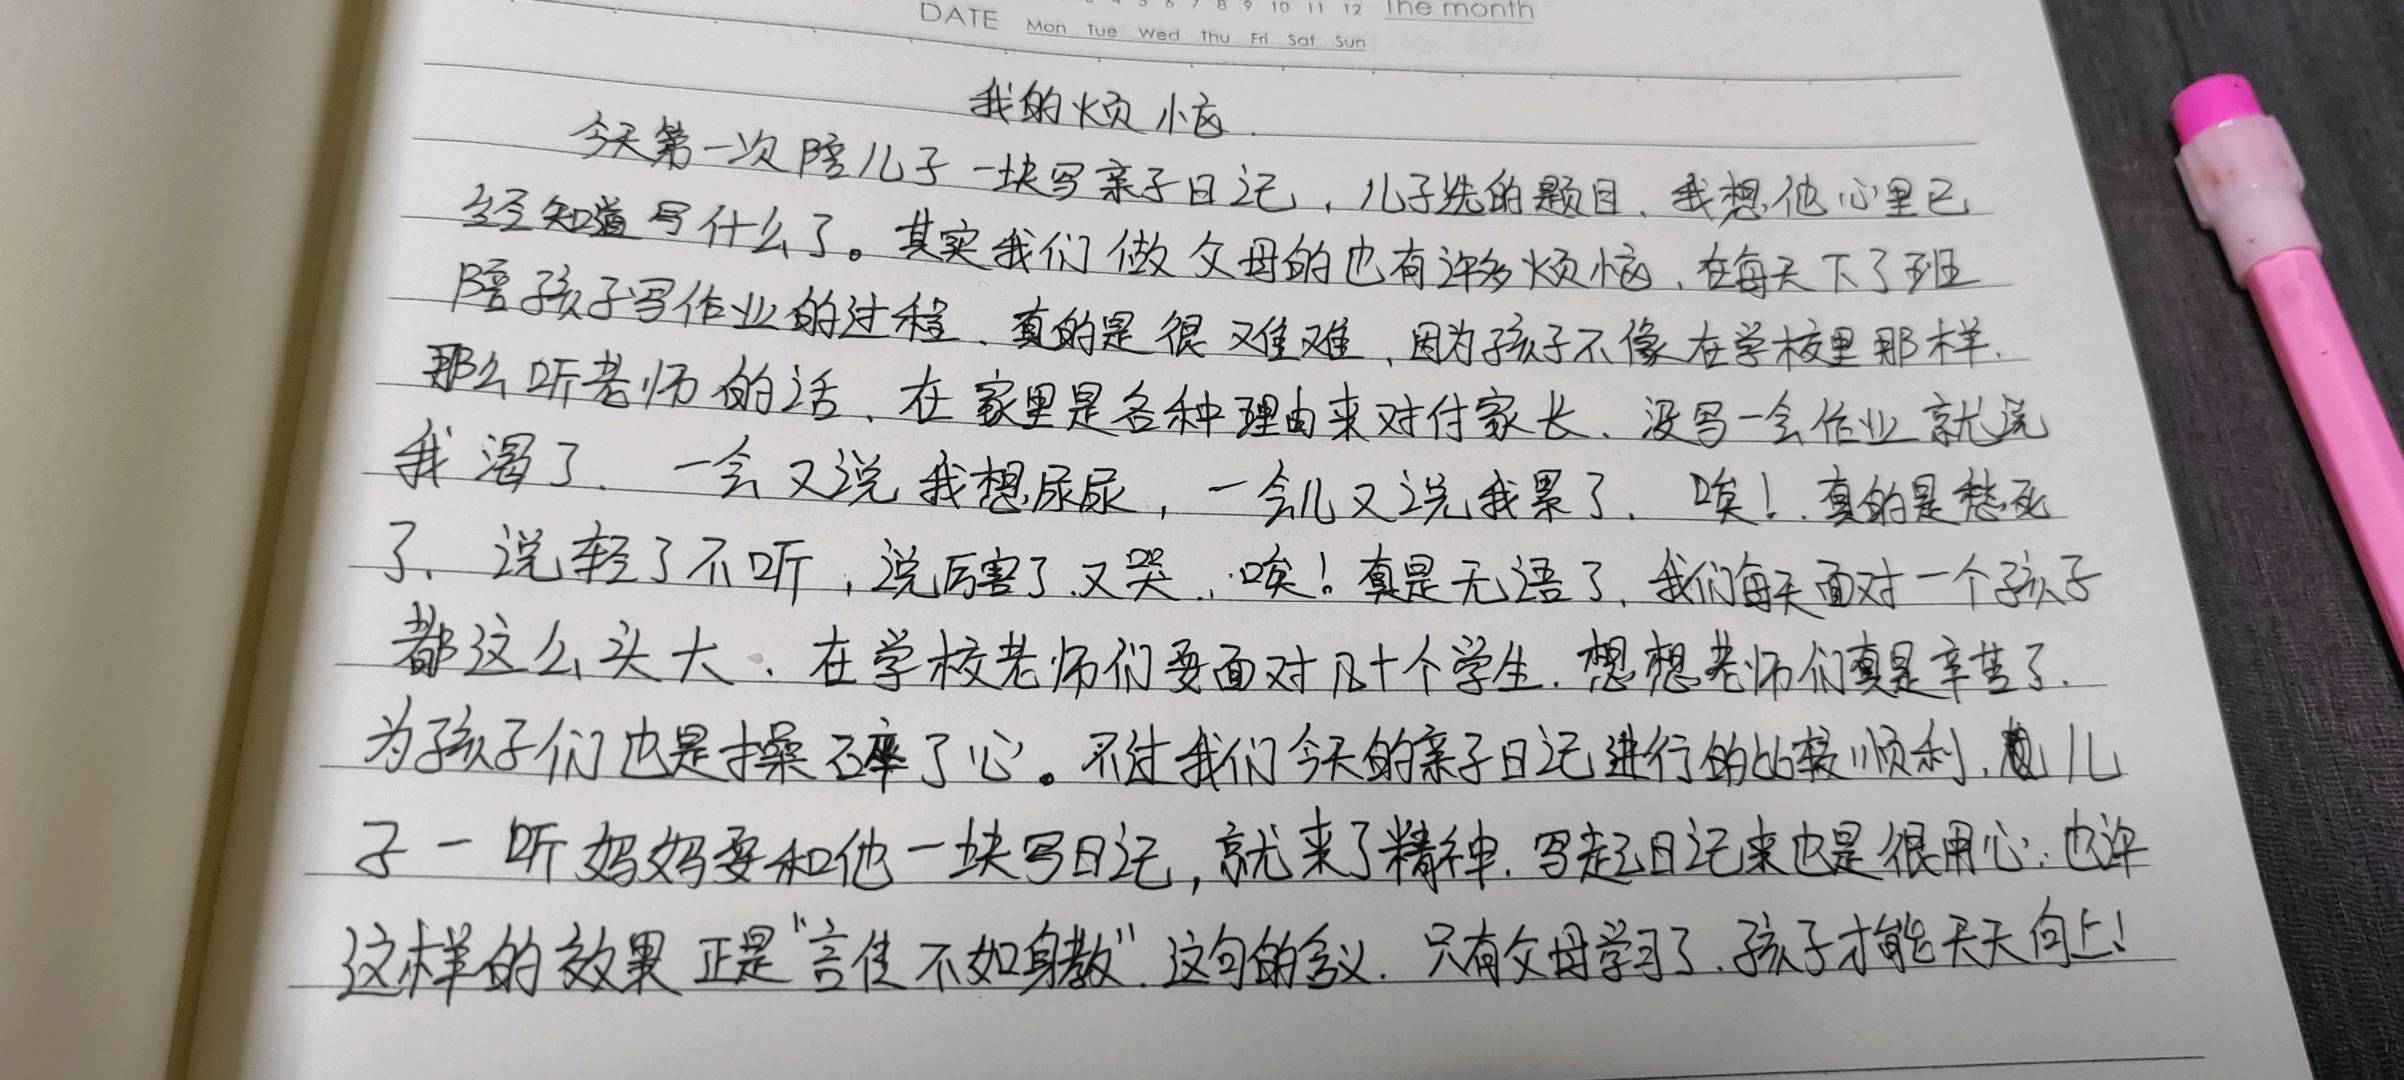 DATE 4 5 6 7 8 9 10 11 12 The month
Mon Tue Wed Thu Fri Sat Sun
我的烦恼
今天第一次陪儿子一块写亲子日记，儿子选的题目、我想他心里已
经知道写什么了。其实我们做父母的也有许多烦恼、在每天下了班
陪孩子写作业的过程、真的是很难难、因为孩子不像在学校里那样、
那么听老师的话、在家里是各种理由来对付家长、没写一会作业就说
我渴了、一会又说我想尿尿，一会儿又说我累了、唉！真的是愁死
了、说轻了不听，说厉害了又哭、唉！真是无语了、我们每天面对一个孩子
都这么头大、在学校老师们要面对几十个学生、想想老师们真是辛苦了、
为孩子们也是操碎了心。不过我们今天的亲子日记进行的比较顺利、儿
子一听妈妈要和他一块写日记，就来了精神、写起日记来也是很用心、也许
这样的效果正是“言传不如身教”、这句的含义、只有父母学习了、孩子才能天天向上！